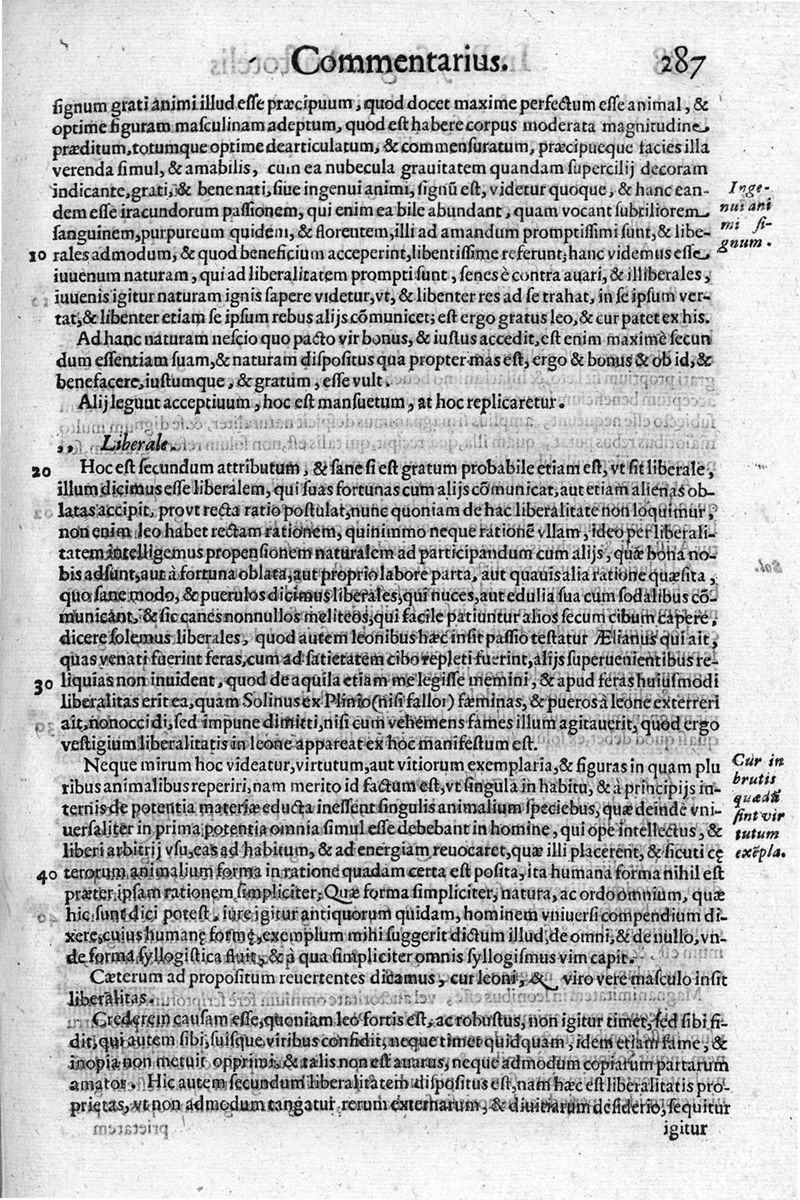 Commentarius. 287
signum grati animi illud esse præcipuum, quod docet maxime perfectum esse animal, &
optime figuram masculinam adeptum, quod est habere corpus moderata magnitudine
præditum, totumque optime dearticulatum, & commensuratum, præcipueque facies illa
verenda simul, & amabilis, cum ea nubecula grauitatem quandam supercilij decoram
indicante, grati, & bene nati, siue ingenui animi, signũ est, videtur quoque, & hanc ean-
dem esse iracundorum passionem, qui enim ea bile abundant, quam vocant subtiliorem
sanguinem, purpureum quidem, & florentem, illi ad amandum promptissimi sunt, & libe-
Inge-
nui ani
mi si-
gnum.
10 rales admodum, & quod beneficium acceperint, libentissime referunt; hanc videmus esse
iuuenum naturam, qui ad liberalitatem prompti sunt, senes è contra auari, & illiberales,
iuuenis igitur naturam ignis sapere videtur, vt, & libenter res ad se trahat, in se ipsum ver-
tat, & libenter etiam se ipsum rebus alijs cõmunicet; est ergo gratus leo, & cur patet ex his.
Ad hanc naturam nescio quo pacto vir bonus, & iustus accedit, est enim maximè secun
dum essentiam suam, & naturam dispositus qua propter mas est, ergo & bonus & ob id, &
benefacere, iustumque, & gratum, esse vult.
Alij legunt acceptiuum, hoc est mansuetum, at hoc replicaretur.
,, Liberale.
20 Hoc est secundum attributum, & sane si est gratum probabile etiam est, vt sit liberale,
illum dicimus esse liberalem, qui suas fortunas cum alijs cõmunicat, aut etiam alienas ob-
latas accipit, provt recta ratio postulat, nunc quoniam de hac liberalitate non loquimur,
non enim leo habet rectam rationem, quinimmo neque rationẽ vllam, ideo per liberali-
tatem intelligemus propensionem naturalem ad participandum cum alijs, quæ bona no-
bis adsunt, aut à fortuna oblata, aut proprio labore parta, aut quauis alia ratione quæsita,
quo sane modo, & puerulos dicimus liberales, qui nuces, aut edulia sua cum sodalibus cõ-
municant, & sic canes nonnullos meliteos, qui facile patiuntur alios secum cibum capere,
dicere solemus liberales, quod autem leonibus hæc insit passio testatur Ælianus qui ait,
quas venati fuerint feras, cum ad satietatem cibo repleti fuerint, alijs superuenientibus re-
30 liquias non inuident, quod de aquila etiam me legisse memini, & apud feras huiusmodi
liberalitas erit ea, quam Solinus ex Plinio (nisi fallor) fæminas, & pueros à leone exterreri
ait, non occidi, sed impune dimitti, nisi cum vehemens fames illum agitauerit, quod ergo
vestigium liberalitatis in leone appareat ex hoc manifestum est.
Neque mirum hoc videatur, virtutum, aut vitiorum exemplaria, & figuras in quam plu
ribus animalibus reperiri, nam merito id factum est, vt singula in habitu, & à principijs in-
ternis de potentia materiæ educta inessent singulis animalium speciebus, quæ deinde vni-
uersaliter in prima potentia omnia simul esse debebant in homine, qui ope intellectus, &
liberi arbitrij vsu, eas ad habitum, & ad energiam reuocaret, quæ illi placerent, & sicuti cę
Cur in
brutis
quædã
sint vir
tutum
exẽpla.
40 terorum animalium forma in ratione quadam certa est posita, ita humana forma nihil est
præter ipsam rationem simpliciter, Quæ forma simpliciter, natura, ac ordo omnium, quæ
hic sunt dici potest, iure igitur antiquorum quidam, hominem vniuersi compendium di-
xere, cuius humanę formę, exemplum mihi suggerit dictum illud, de omni, & de nullo, vn-
de forma syllogistica fluit, & à qua simpliciter omnis syllogismus vim capit.
Cæterum ad propositum reuertentes dicamus, cur leoni, & viro vere masculo insit
liberalitas.
Crederem causam esse, quoniam leo fortis est, ac robustus, non igitur timet, sed sibi fi-
dit, qui autem sibi, suisque viribus confidit, neque timet quidquam, idem etiam fame, &
inopia non metuit opprimi, & talis non est auarus, neque admodum copiarum partarum
amator. Hic autem secundum liberalitatem dispositus est, nam hæc est liberalitatis pro-
prietas, vt non admodum tangatur rerum externarum, & diuitiarum desiderio, sequitur
igitur